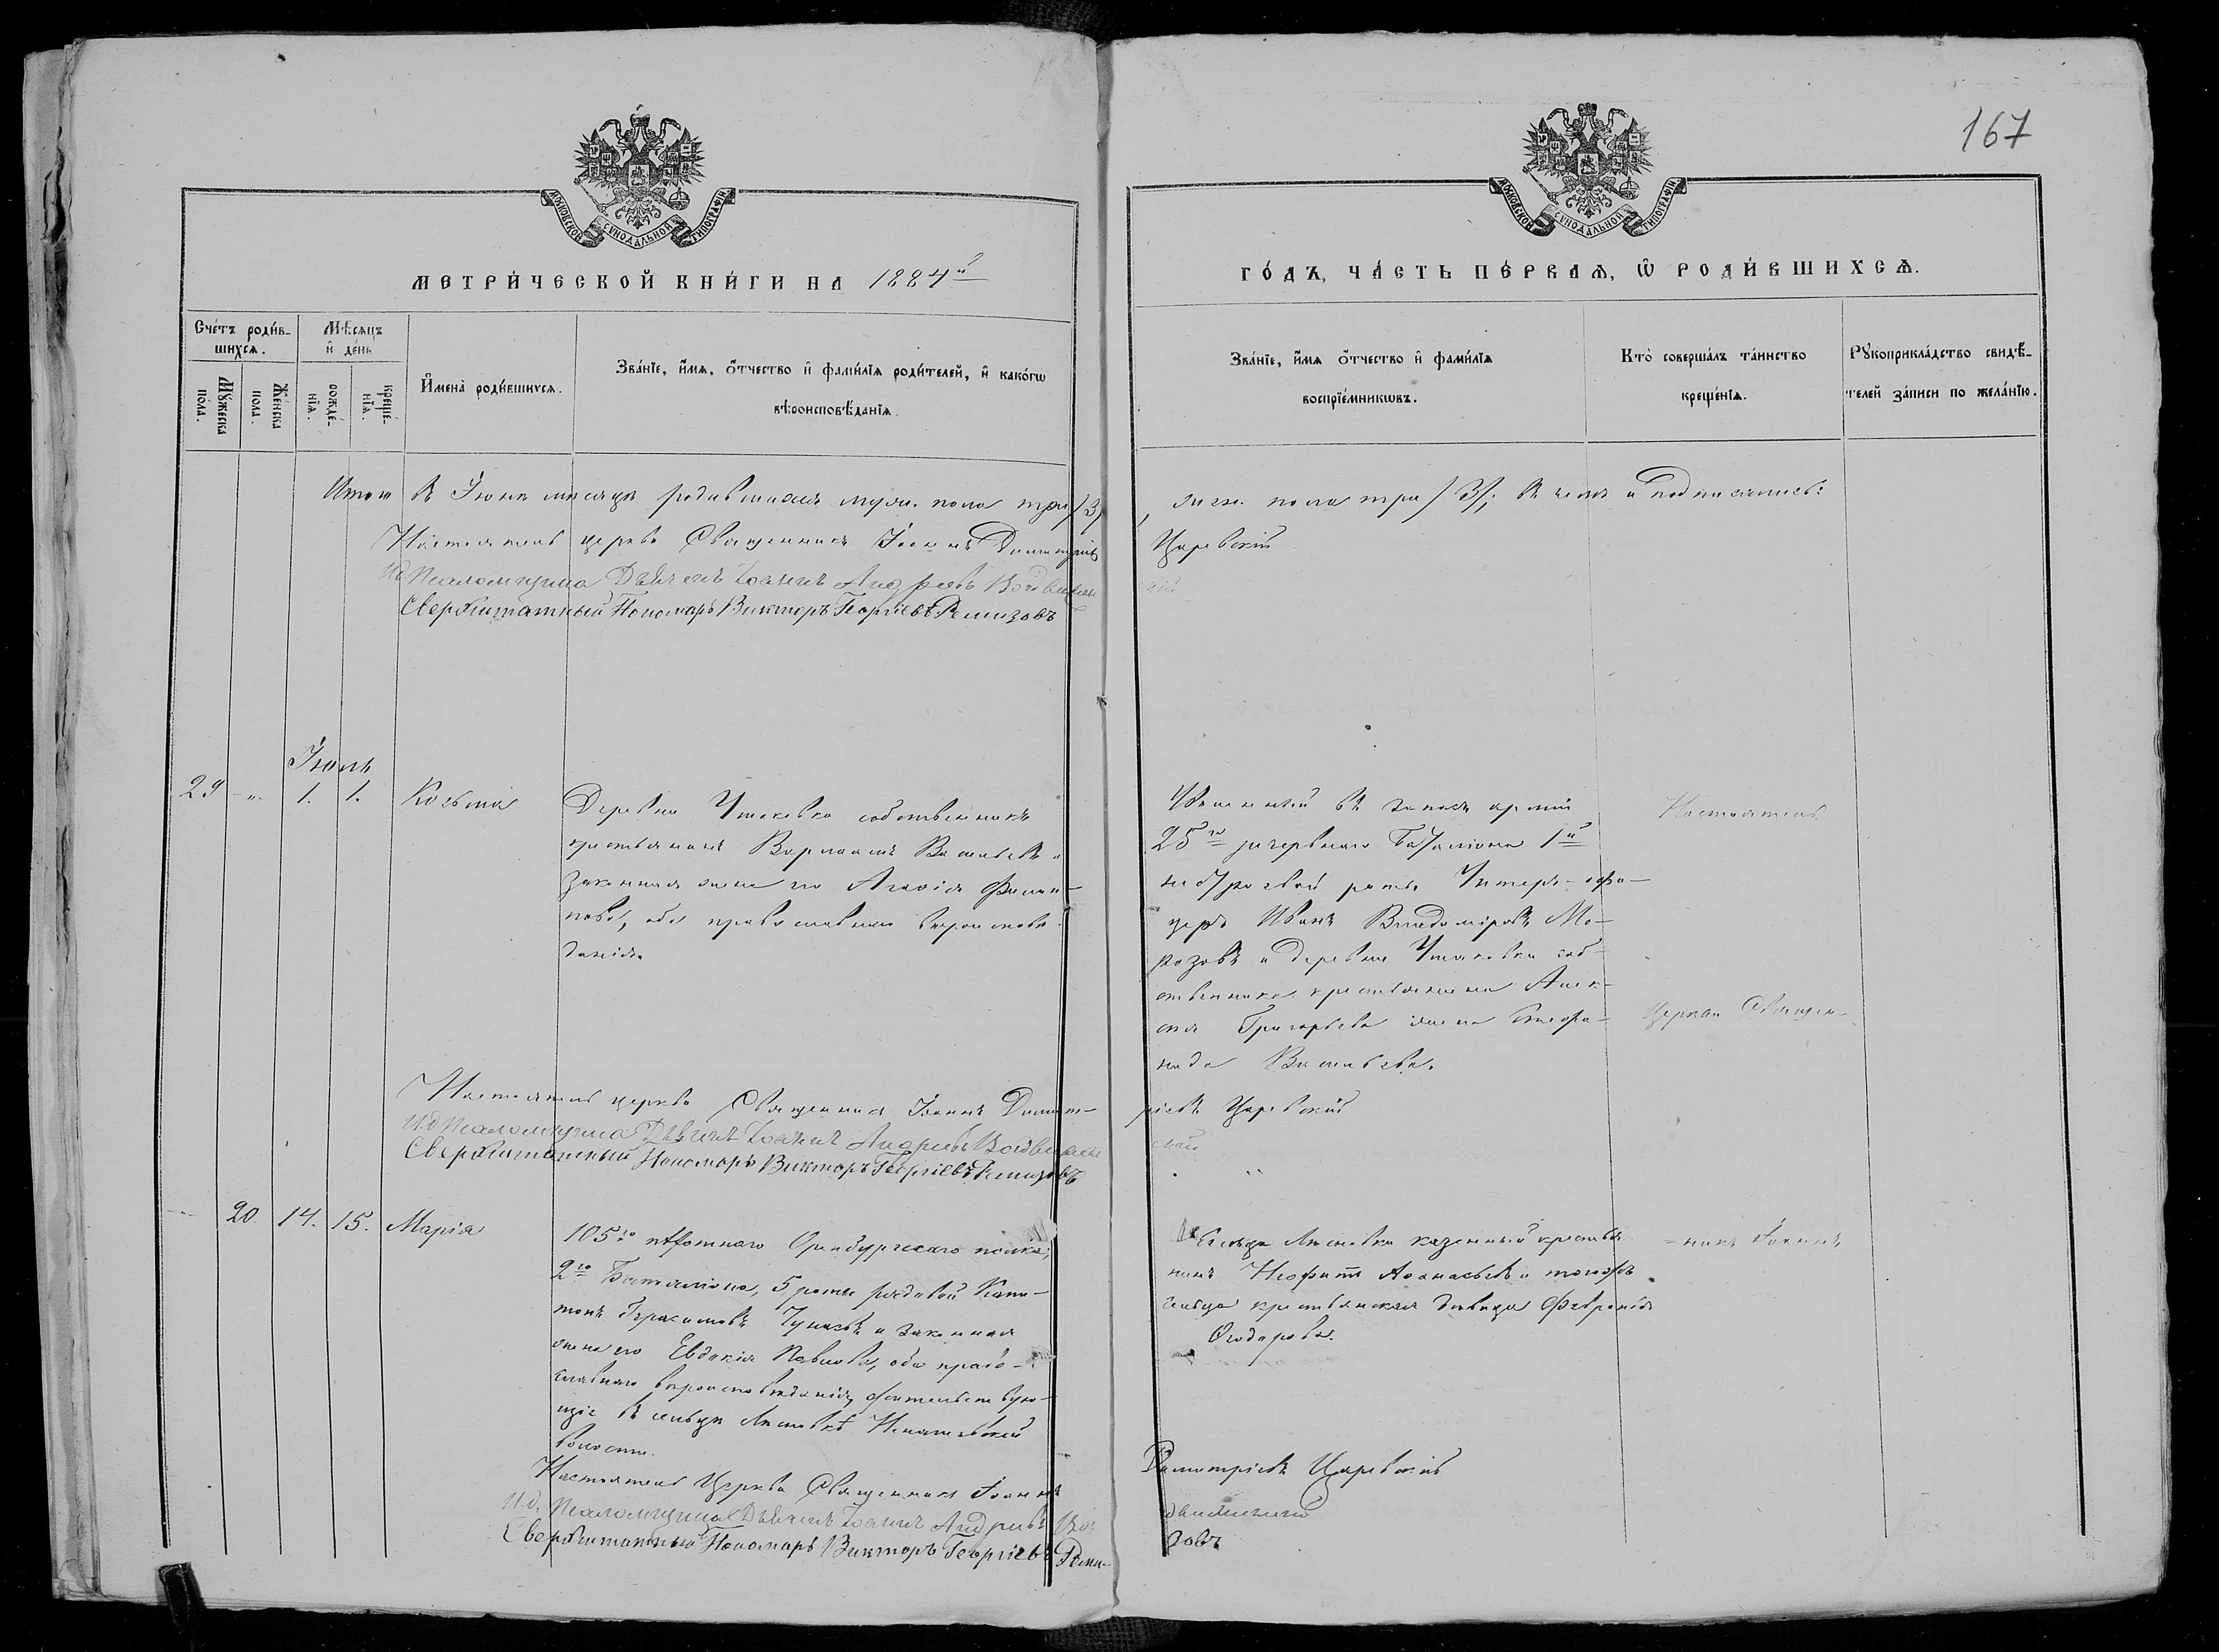 167
МОСКОВСКОЙ СѴНОДАЛЬНОЙ ТИПОГРАФІИ
МОСКОВСКОЙ СѴНОДАЛЬНОЙ ТИПОГРАФІИ
МЕТРИ́ЧЕСКОЙ КНИ́ГИ НА 1884й
ГО́ДЪ, ЧА́СТЬ ПЕ́РВАЯ, Ѡ РОДИ́ВШИХСЯ.
Сче́тъ роди́в-
шихся.
Мѣсяцъ
и де́нь
Мꙋ́жеска пола.
Же́нска пола.
рожде́-
нїя.
креще́-
нїя.
Имена̀ роди́вшихся.
Зва́нїе, и́мя, о́тчество и фами́лїя роди́телей, и како́гѡ
вѣроисповѣ́данїя.
Зва́нїе, и́мя о́тчество и фами́лїя
воспрїе́мникѡвъ.
Кто̀ соверша́лъ та́инство
креще́нїя.
Рꙋкоприкла́дство свидѣ́-
телей за́писи по жела́нїю.
Итого въ Іюнѣ мѣсяцѣ родившихся муж. пола три /3/
, жен. пола три /3/; въ чемъ и подписались:
Настоятель церкви Священникъ Іоаннъ Димитріевъ
Царевскій
И.д. Псаломщика Діаконъ Іоаннъ Андреевъ
Сверхштатный Пономарь Викторъ Георгіевъ Ремизовъ
Іюль
29 -„- 1. 1. Козьма
Деревни собственникъ
крестьянинъ Варлаамъ Васильевъ и
законная жена его Агаѳія Филип-
пова, оба православнаго вѣроисповѣ-
данія.
въ запасъ арміи
25го резервнаго Баталіона 1й
роты Унтеръ-офи-
церъ Иванъ Мо-
розовъ и деревни соб-
ственника крестьянина Алек-
сѣя Григорьева жена Стефа-
нида Васильева.
Настоятель
Церкви Священ-
Настоятель церкви Священникъ Іоаннъ Димит-
ріевъ Царевскій
И.д. Псаломщика Діаконъ Іоаннъ Андреевъ
Сверхштатный Пономарь Викторъ Георгіевъ Ремизовъ
20. 14. 15. Марія
105го пѣхотнаго Оренбургскаго полка,
2го Баталіона, 5 роты рядовой Капи-
тонъ Герасимовъ и законная
жена его Евдокія Павлова, оба право-
славнаго вѣроисповѣданія, жительствую-
щіе въ сельцѣ
волости.
Сельца казенный крестья-
нинъ Неофитъ Аѳанасьевъ и тогожъ
сельца крестьянская дѣвица Февронія
Ѳеодорова.
никъ Іоаннъ
Настоятель Церкви Священникъ Іоаннъ
Димитріевъ Царевскій
И.д. Псаломщика Діаконъ Іоаннъ Андреевъ Воз-
движенскій
Сверхштатный Пономарь Викторъ Георгіевъ Реми-
зовъ